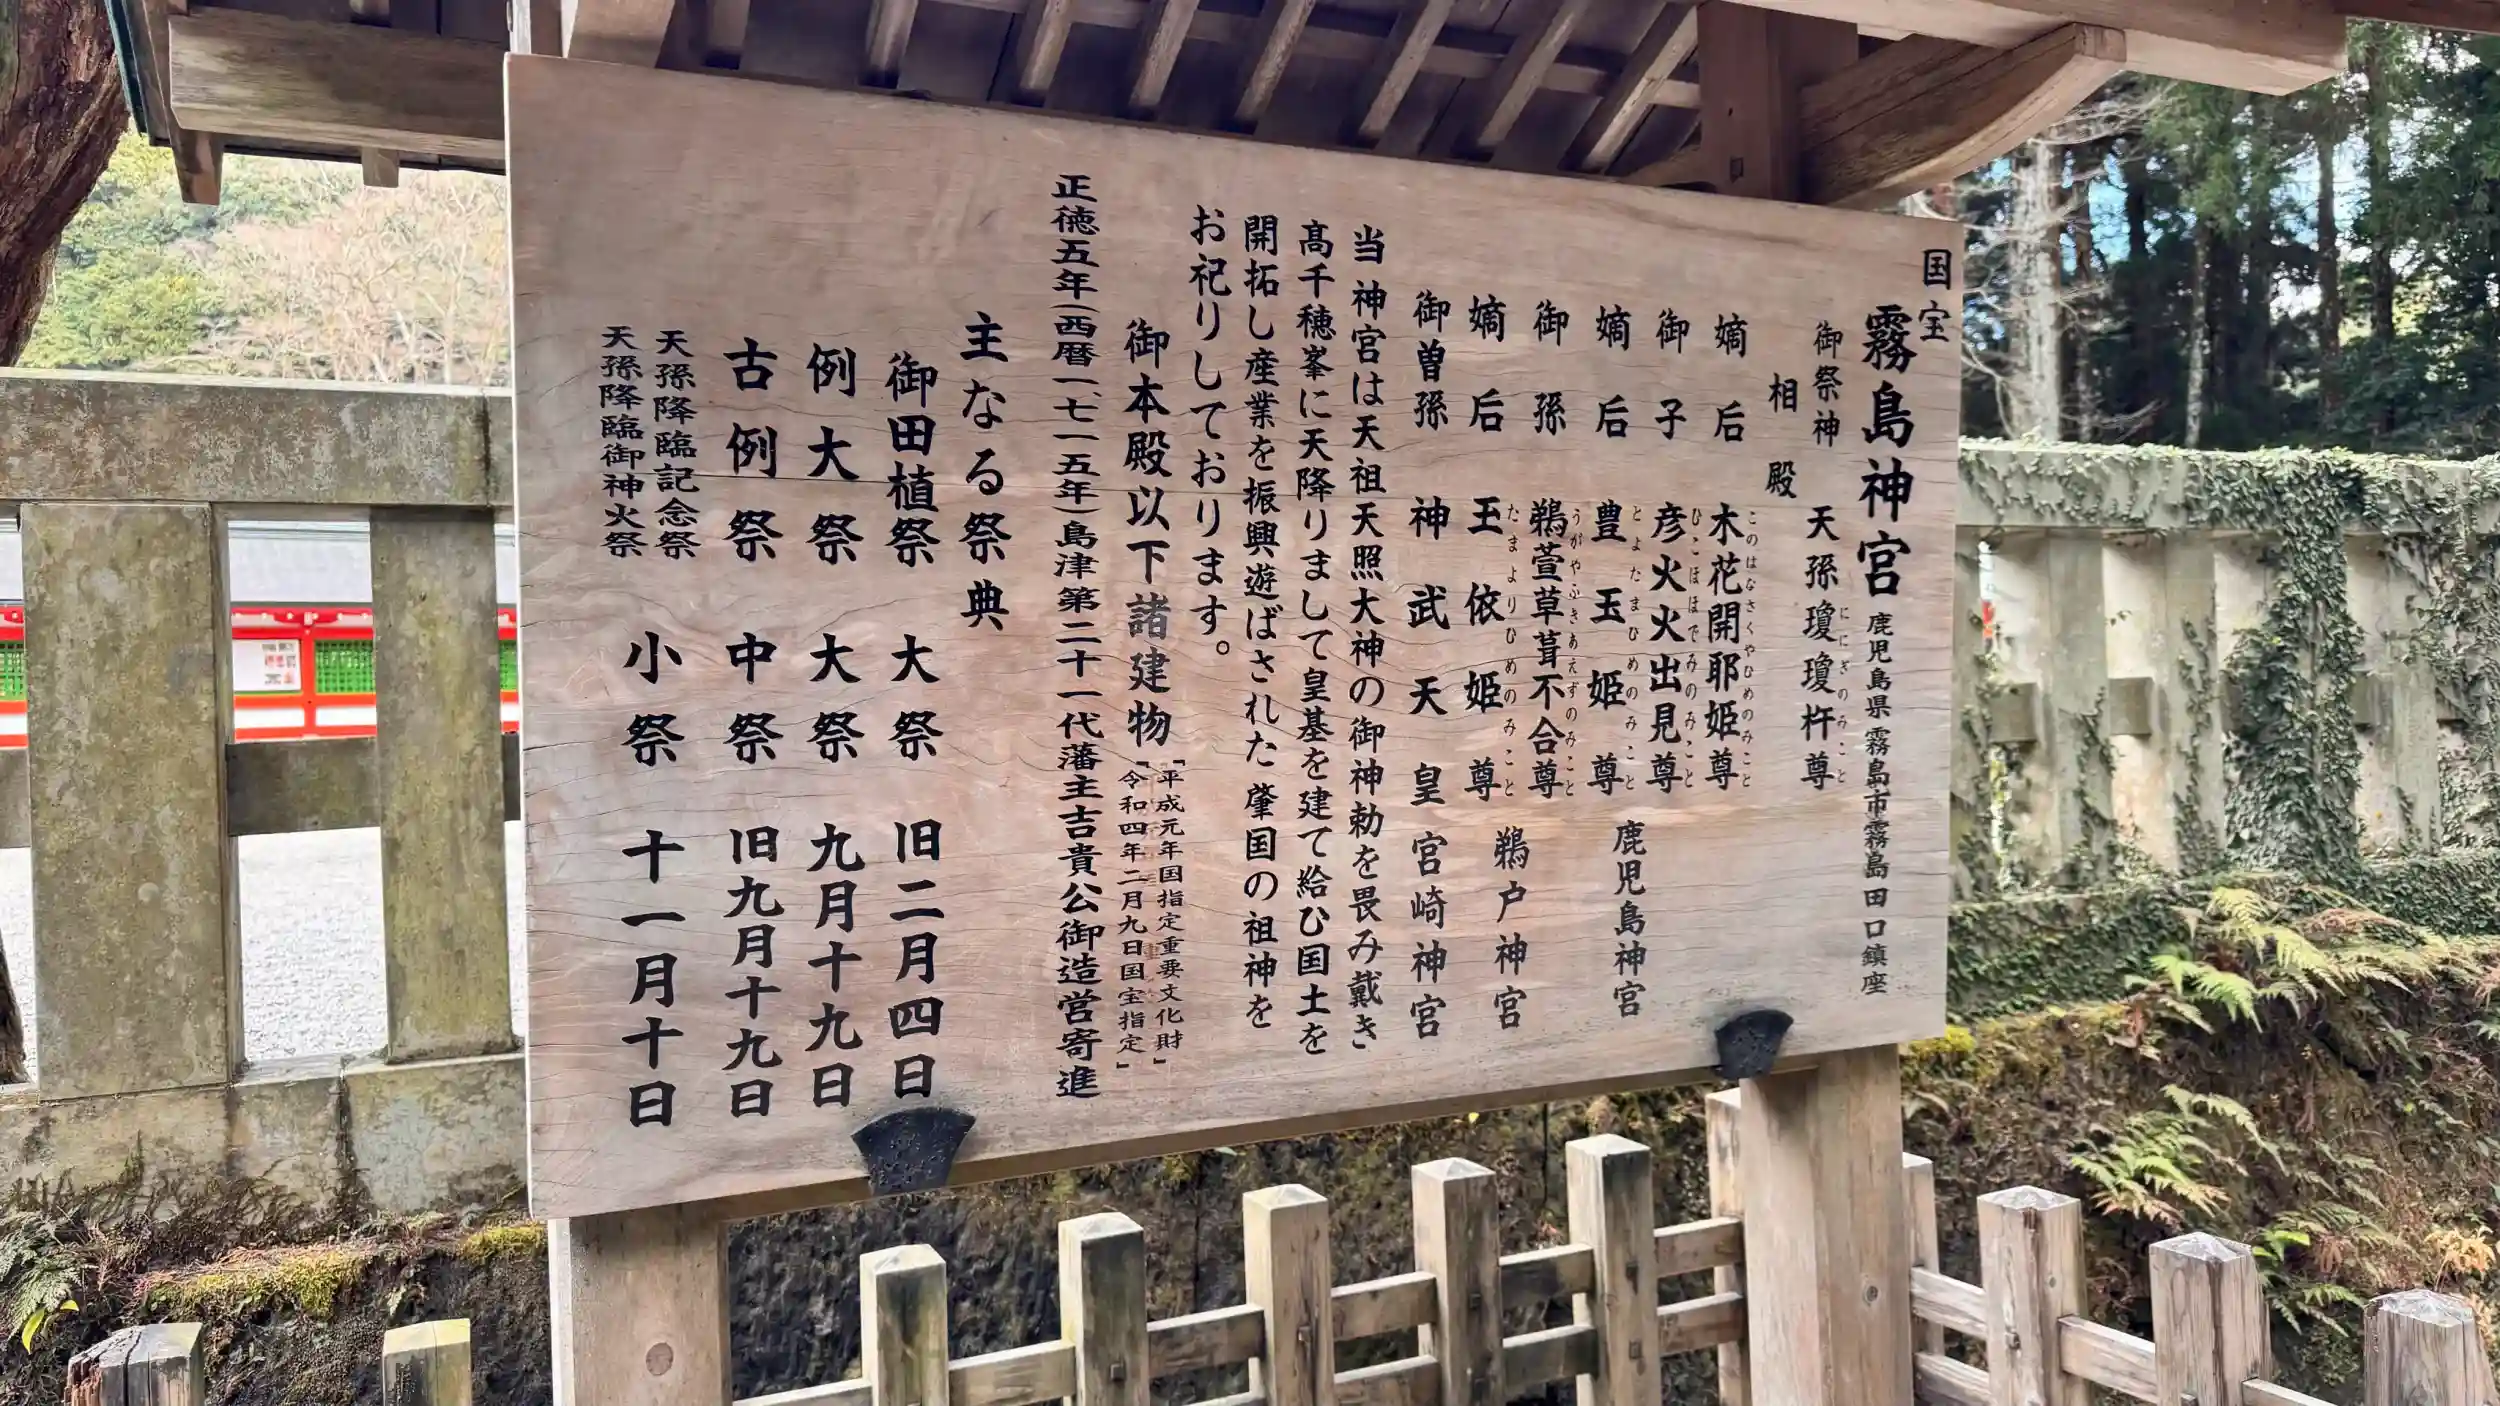 国宝
霧島神宮 鹿児島県霧島市霧島田口鎮座
御祭神 天孫瓊瓊杵尊
ににぎのみこと
相殿
嫡后 木花開耶姫尊
このはなさくやひめのみこと
御子 彦火火出見尊
ひこほほでみのみこと
嫡后 豊玉姫尊 鹿児島神宮
とよたまひめのみこと
御孫 鵜萱草葺不合尊
うがやふきあえずのみこと
嫡后 玉依姫尊 鵜戸神宮
たまよりひめのみこと
御曽孫 神武天皇 宮崎神宮
当神宮は天祖天照大神の御神勅を畏み戴き
髙千穂峯に天降りまして皇基を建て給ひ国土を
開拓し産業を振興遊ばされた肇国の祖神を
お祀りしております。
御本殿以下諸建物
「平成元年国指定重要文化財」
「令和四年二月九日国宝指定」
正徳五年(西暦一、七一五年)島津第二十一代藩主吉貴公御造営寄進
主なる祭典
御田植祭 大祭 旧二月四日
例大祭 大祭 九月十九日
古例祭 中祭 旧九月十九日
天孫降臨記念祭
天孫降臨御神火祭
小祭 十一月十日